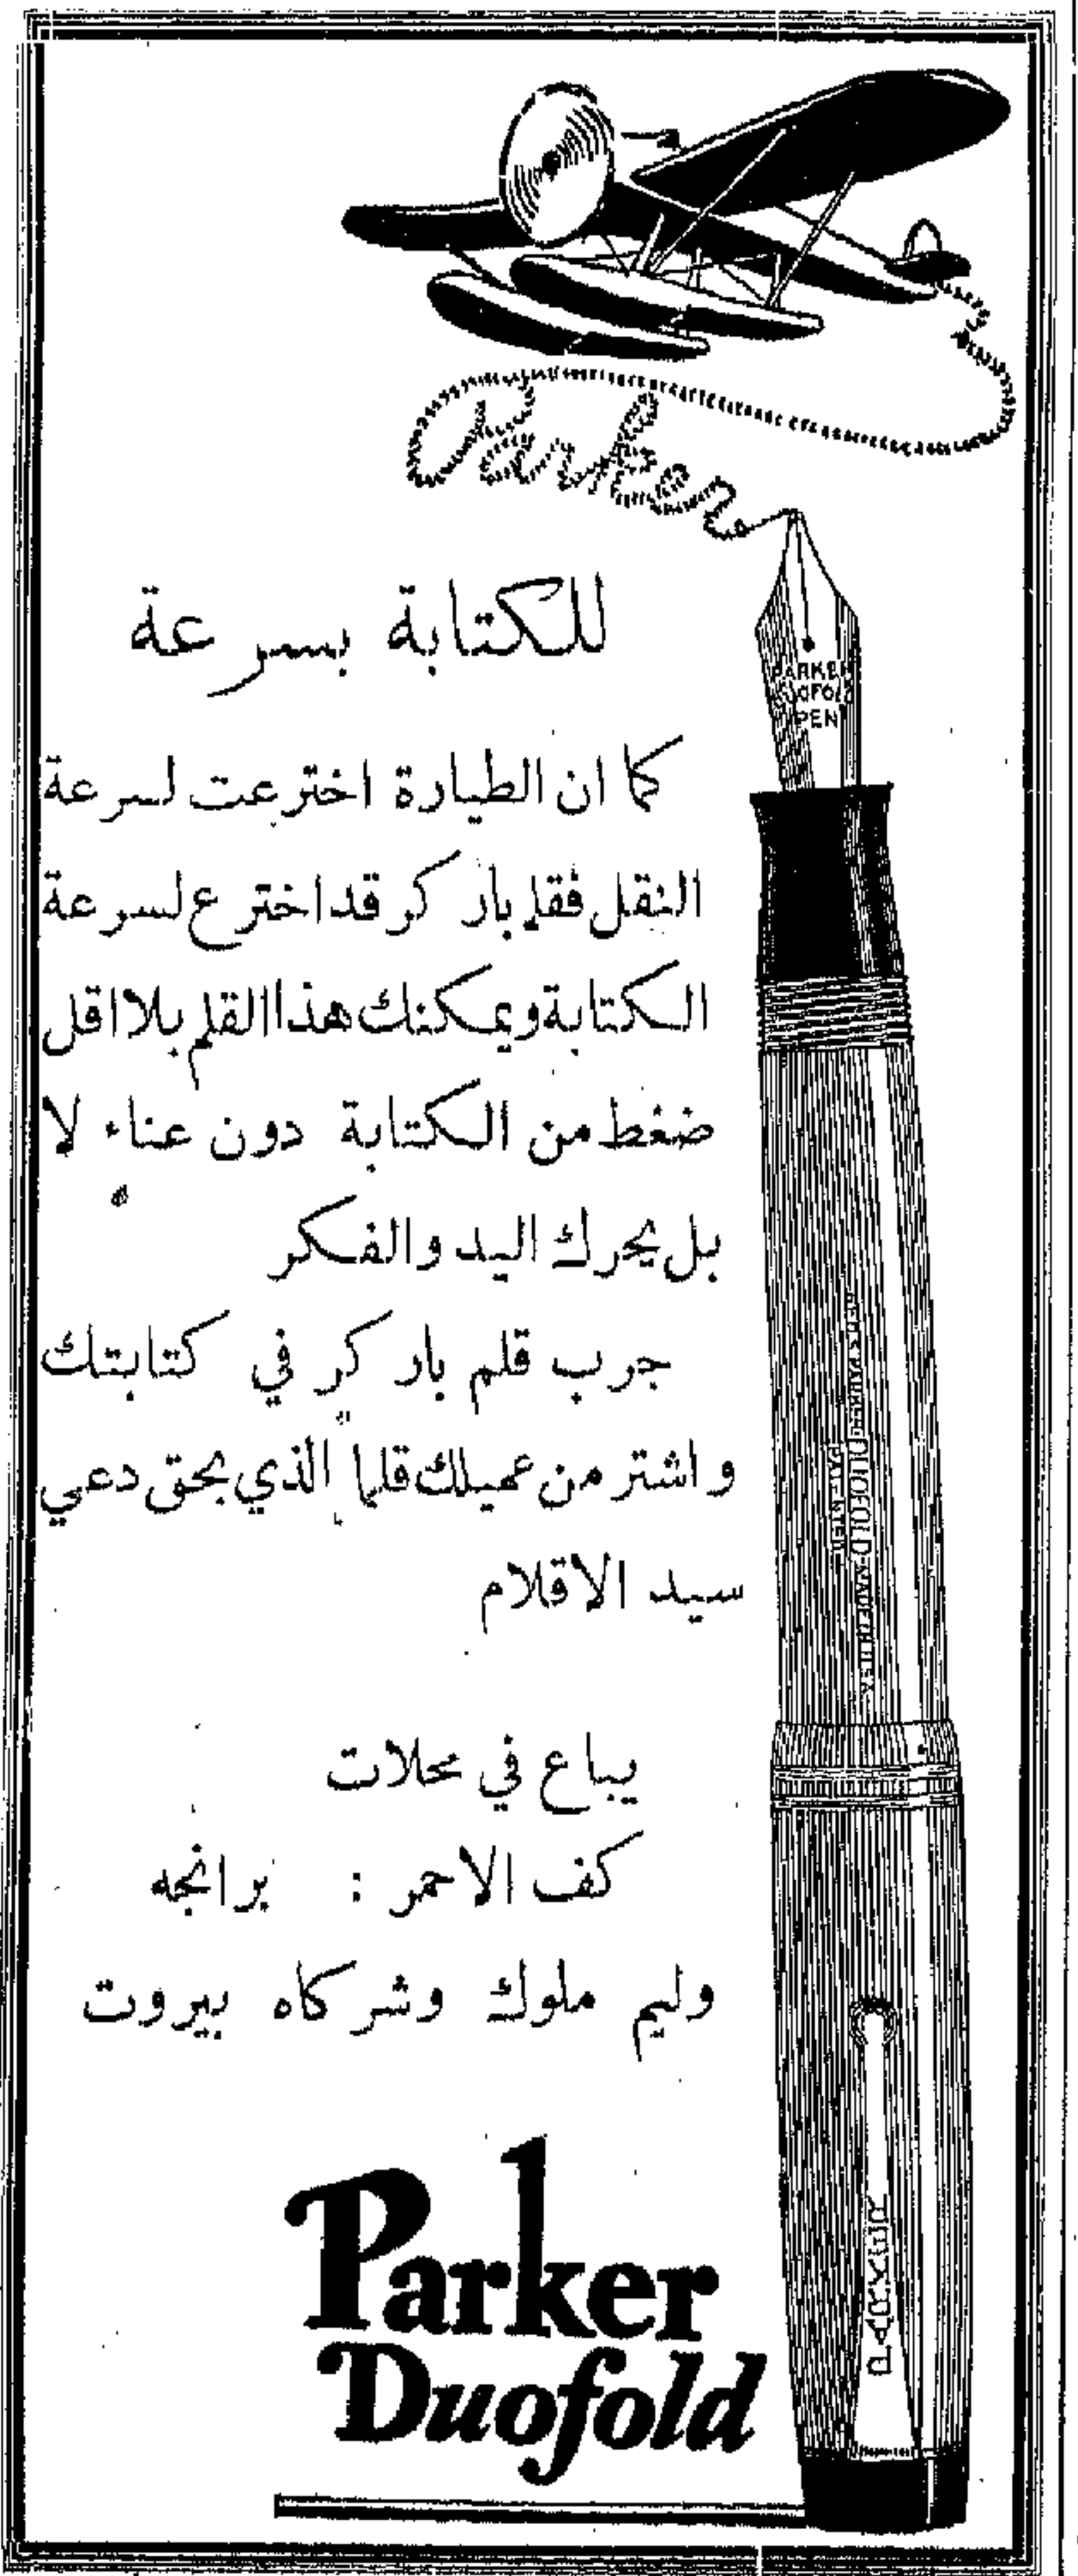 Parker
PARKER
DUOFOLD
PEN
للكتابة بسرعة
كما ان الطيارة اخترعت لسرعة
النقل فقلم باركر قد اخترع لسرعة
الكتابة ويمكنك هذا القلم بلا اقل
ضغط من الكتابة دون عناء لا
بل يحرك اليد والفكر
جرب قلم باركر في كتابتك
واشتر من عميلك قلما الذي بحق دعي
سيد الاقلام
يباع في محلات
كف الاحمر : برانجه
وليم ملوك وشركاه بيروت
DUOFOLD
PARKER
Parker
Duofold